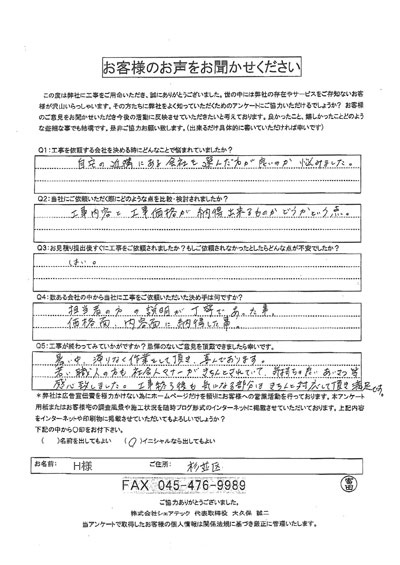 お客様のお声をお聞かせください
この度は弊社に工事をご用命いただき、誠にありがとうございました。世の中には弊社の存在やサービスをご存知ないお客
様が沢山いらっしゃいます。その方たちに弊社をよく知っていただくためのアンケートにご協力いただけるでしょうか？ お客様
のご意見をお聞かせいただき今後の活動に反映させていただきたいと考えております。良かったこと、嬉しかったことどのよう
な些細な事でも結構です。是非ご協力お願い致します。(出来るだけ具体的に書いていただければ幸いです)
Q1:工事を依頼する会社を決める時にどんなことで悩まれていましたか？
自宅の近隣にある会社を選んだ方が良いのか悩みました。
Q2:当社にご依頼いただく際にどのような点を比較・検討されましたか？
工事内容と工事価格が納得出来るものかどうかという点。
Q3:お見積り提出後すぐに工事をご依頼されましたか？もしご依頼されなかったとしたらどんな点が不安でしたか？
はい。
Q4:数ある会社の中から当社に工事をご依頼いただいた決め手は何ですか？
担当者の方の説明が丁寧であった事。
価格面、内容面に納得した事。
Q5:工事が終わってみていかがですか？忌憚のないご意見を頂戴できましたら幸いです。
暑い中、滞りなく作業をして頂き、喜んでおります。
若い職人の方も社会人マナーがきちんとされていて、気持ちの良いあいさつ等
感心致しました。工事終了後も気になる部分はきちんと対応して頂き満足です。
＊弊社は広告宣伝費を極力かけない為にホームページだけを頼りにお客様への営業活動を行っております。本アンケート
用紙またはお客様宅の調査風景や施工状況を随時ブログ形式のインターネットに掲載させていただいております。上記内容
をインターネットや印刷物に掲載させていただいてもよろしいでしょうか？
下記の中から〇印をお付下さい。
( )名前を出してもよい (〇)イニシャルなら出してもよい
お名前: H様 ご住所: 杉並区
FAX 045-476-9989
ご協力ありがとうございました。
株式会社シェアテック 代表取締役 大久保 誠二
当アンケートで取得したお客様の個人情報は関係法規に基づき厳正に管理いたします。